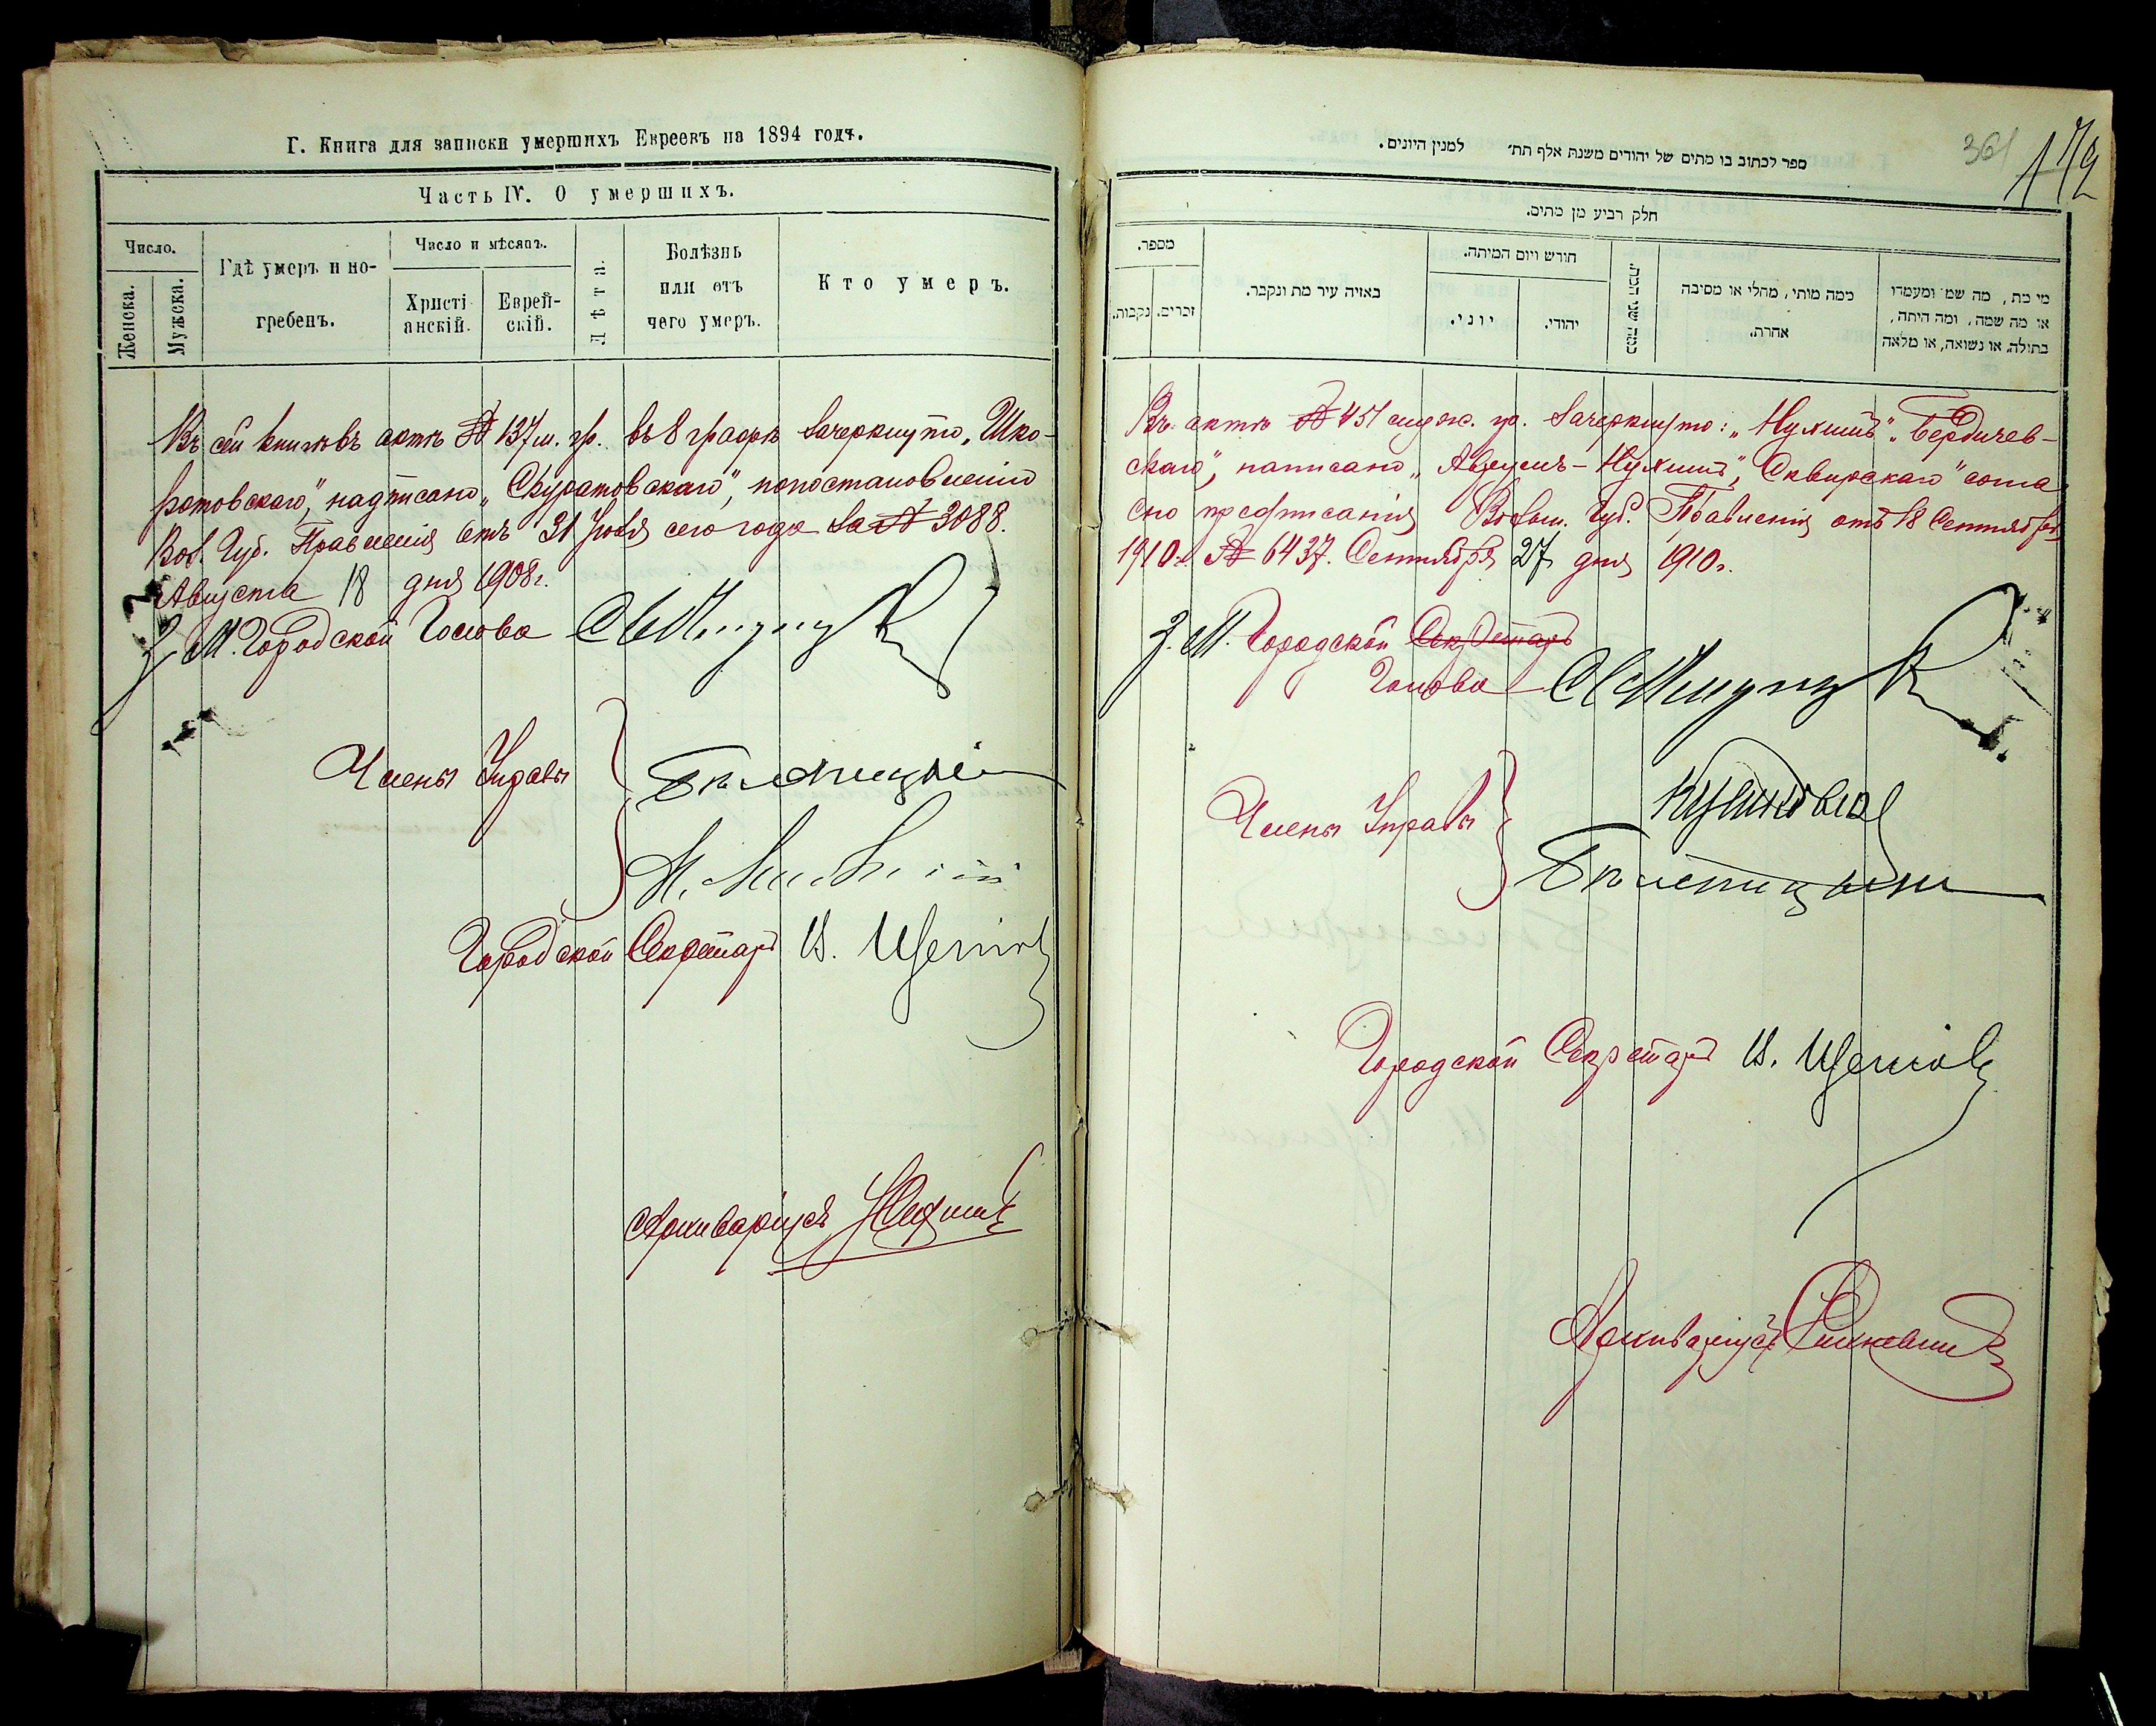 Г. Книга для записки умершихъ Евреевъ на 1894 годъ.
Часть IV. О умершихъ.
Число.
Женска.
Мужска.
Гдѣ умеръ и по-
гребенъ.
Число и мѣсяцъ.
Христі-
анскій.
Еврей-
скій.
Лѣта.
Болѣзнь
или отъ
чего умеръ.
Кто умеръ.
Въ сей книгѣ въ актѣ № 137 м. гр. въ 8 графѣ зачеркнуто „Шко-
ратовскаго", надписано „Скуратовскаго", по постановленію
Вол. Губ. Правленія отъ 31 Іюля сего года за № 3088.
Августа 18 дня 1908 г.
З. М. Городской Голова
Члены Управы
Городской Секретарь
Архиваріусъ
ספר לכתוב בו מתים של יהודים משנת אלף תת׳ למנין היונים.
361
חלק רביע מן מתים.
מספר.
נקבות.
זכרים.
באיזה עיר מת ונקבר.
חורש ויום המיתה.
יוני.
יהודי.
כמה שני המת.
כמה מותי, מחלי או מסיבה
אחרת.
מי מת, מה שמו ומעמדו
או מה שמה, ומה היתה,
בתולה, או נשואה, או מלאה
Въ актѣ № 451 мужс. гр. зачеркнуто: „Нухимъ" „Бердичев-
скаго", написано „Аврумъ-Нухимъ", „Сквирскаго" согла
сно предписанія Волын. Губ. Правленія отъ 18 Сентября
1910 г. № 6437. Сентября 27 дня 1910 г.
З. М. Городской Секретарь
Голова
Члены Управы
Городской Секретарь
Архиваріусъ